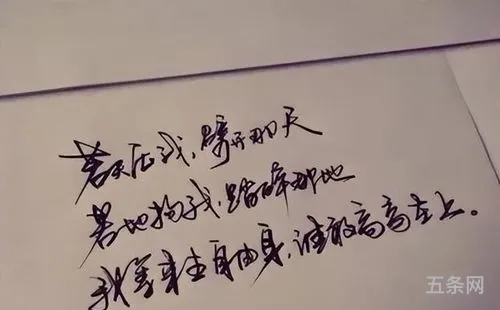 若天压我，劈开那天
若地拘我，踏碎那地
我等生来自由身，谁敢高高在上。
五条网